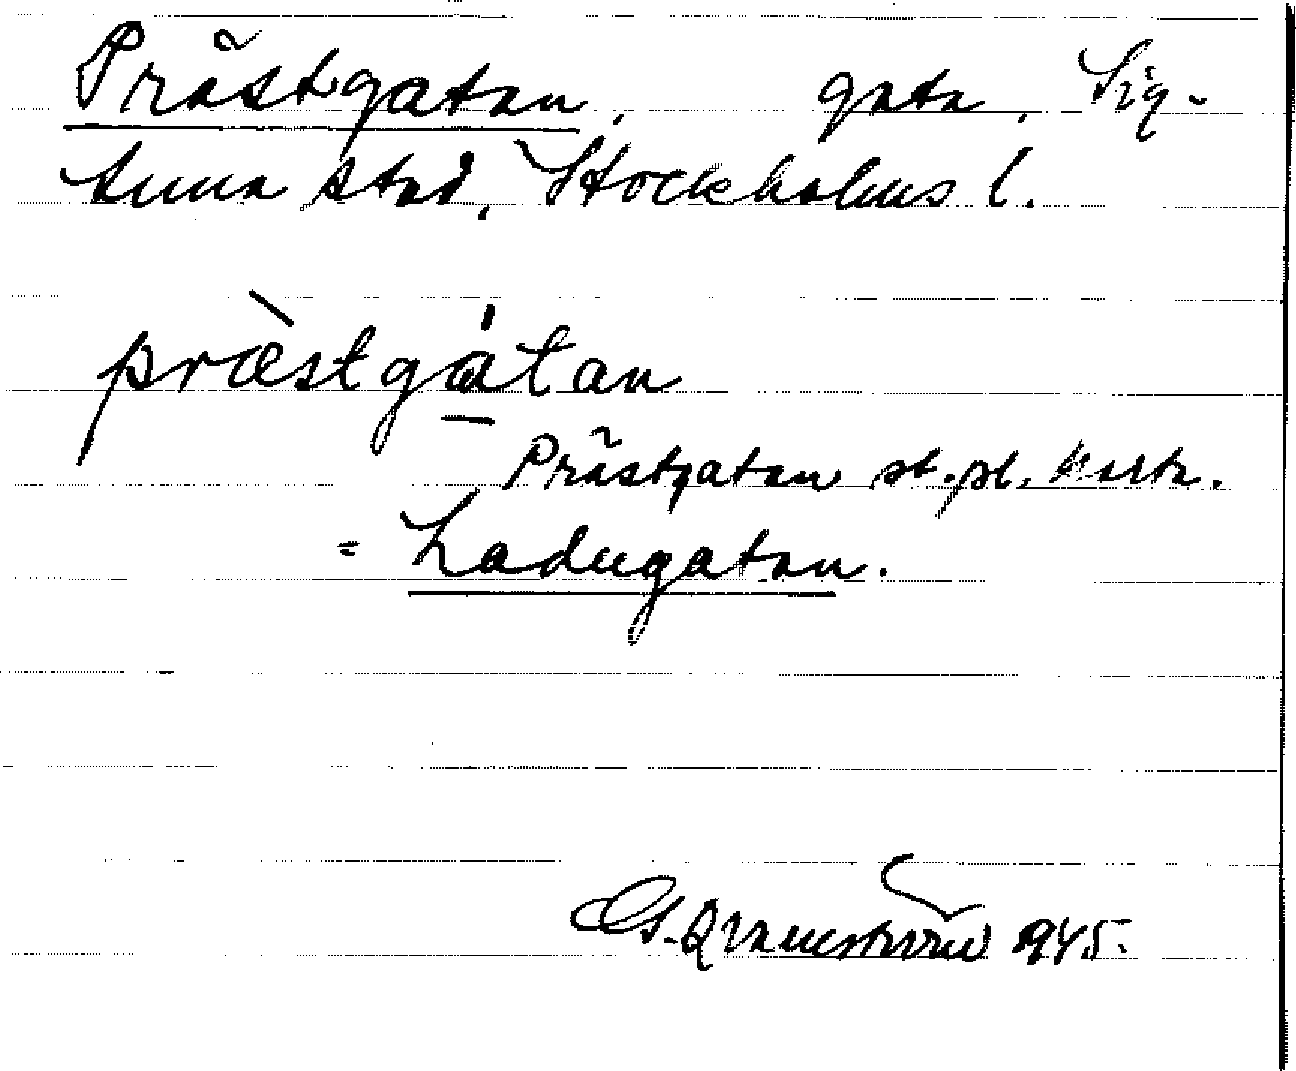 Prästgatan, gata, Sig-
tuna stad, Stockholms l.
prӕ̀stgátan
Prästgatan st.pl. karta.
= Ladugatan.
G. Qvarnström 1945.